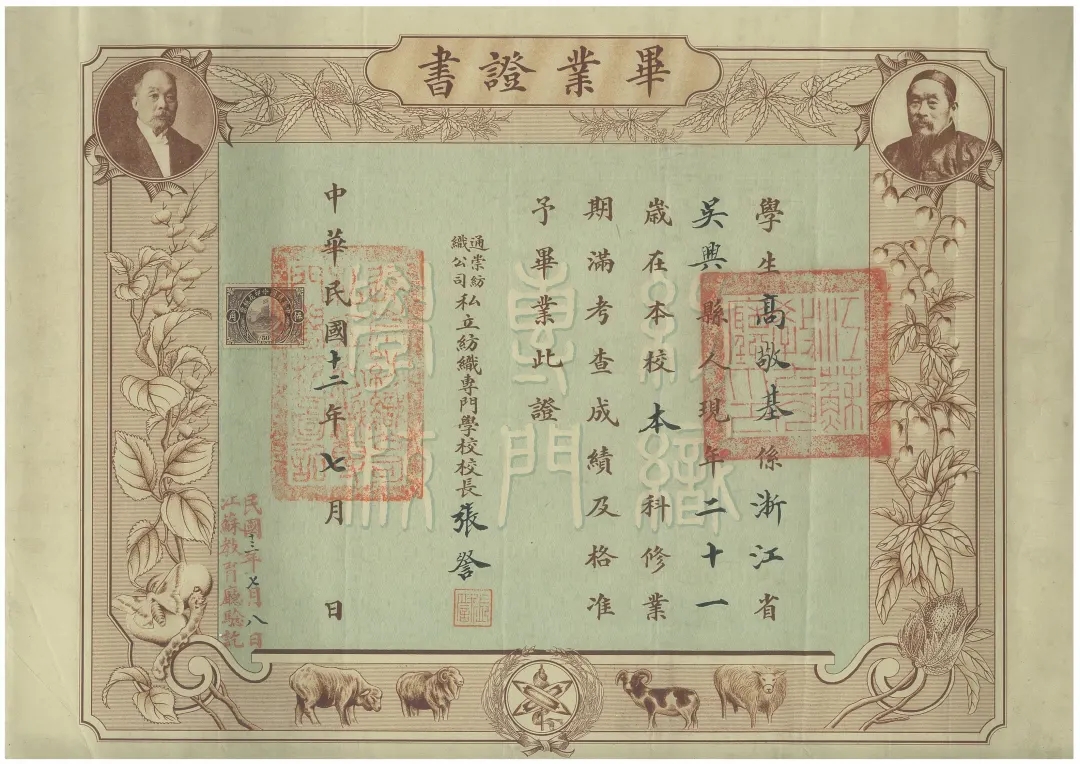 畢業證書
學生高敬基係浙江省
吳興縣人現年二十一
歲在本校本科修業
期滿考查成績及格准
予畢業此證
通崇紡織公司私立紡織專門學校校長張詧
中華民國十二年七月日
紡織
專門
學校
民國十二年七月八日
江蘇教育廳驗訖
伍角
50